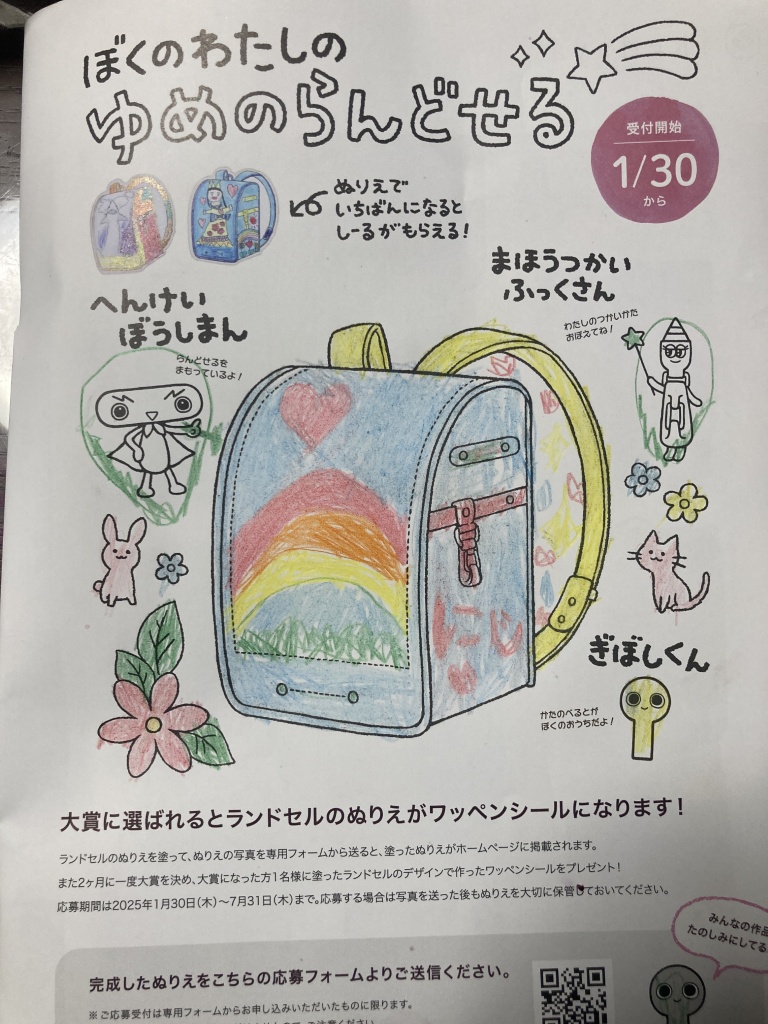 ぼくのわたしの
ゆめのらんどせる
受付開始
1/30
から
ぬりえで
いちばんになると
しーるがもらえる!
まほうつかい
ふっくさん
わたしのつかいかた
おぼえてね!
へんけい
ぼうしまん
らんどせるを
まもっているよ!
にじ
ぎぼしくん
かたのべるとが
ぼくのおうちだよ!
大賞に選ばれるとランドセルのぬりえがワッペンシールになります!
ランドセルのぬりえを塗って、ぬりえの写真を専用フォームから送ると、塗ったぬりえがホームページに掲載されます。
また2ヶ月に一度大賞を決め、大賞になった方1名様に塗ったランドセルのデザインで作ったワッペンシールをプレゼント!
応募期間は2025年1月30日(木)〜7月31日(木)まで。応募する場合は写真を送った後もぬりえを大切に保管しておいてください。
みんなの作品
たのしみにしてる
完成したぬりえをこちらの応募フォームよりご送信ください。
※ご応募受付は専用フォームからお申し込みいただいたものに限ります。